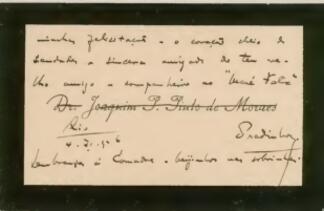 minhas felicitações e o coração cheio de
saudades a sincera amizade do teu ve-
lho amigo e companheiro no
Dr. Joaquim P. Pinto de Moraes
Rio
Pradinho
lembranças á Comadre, beijinhos aos sobrinhos